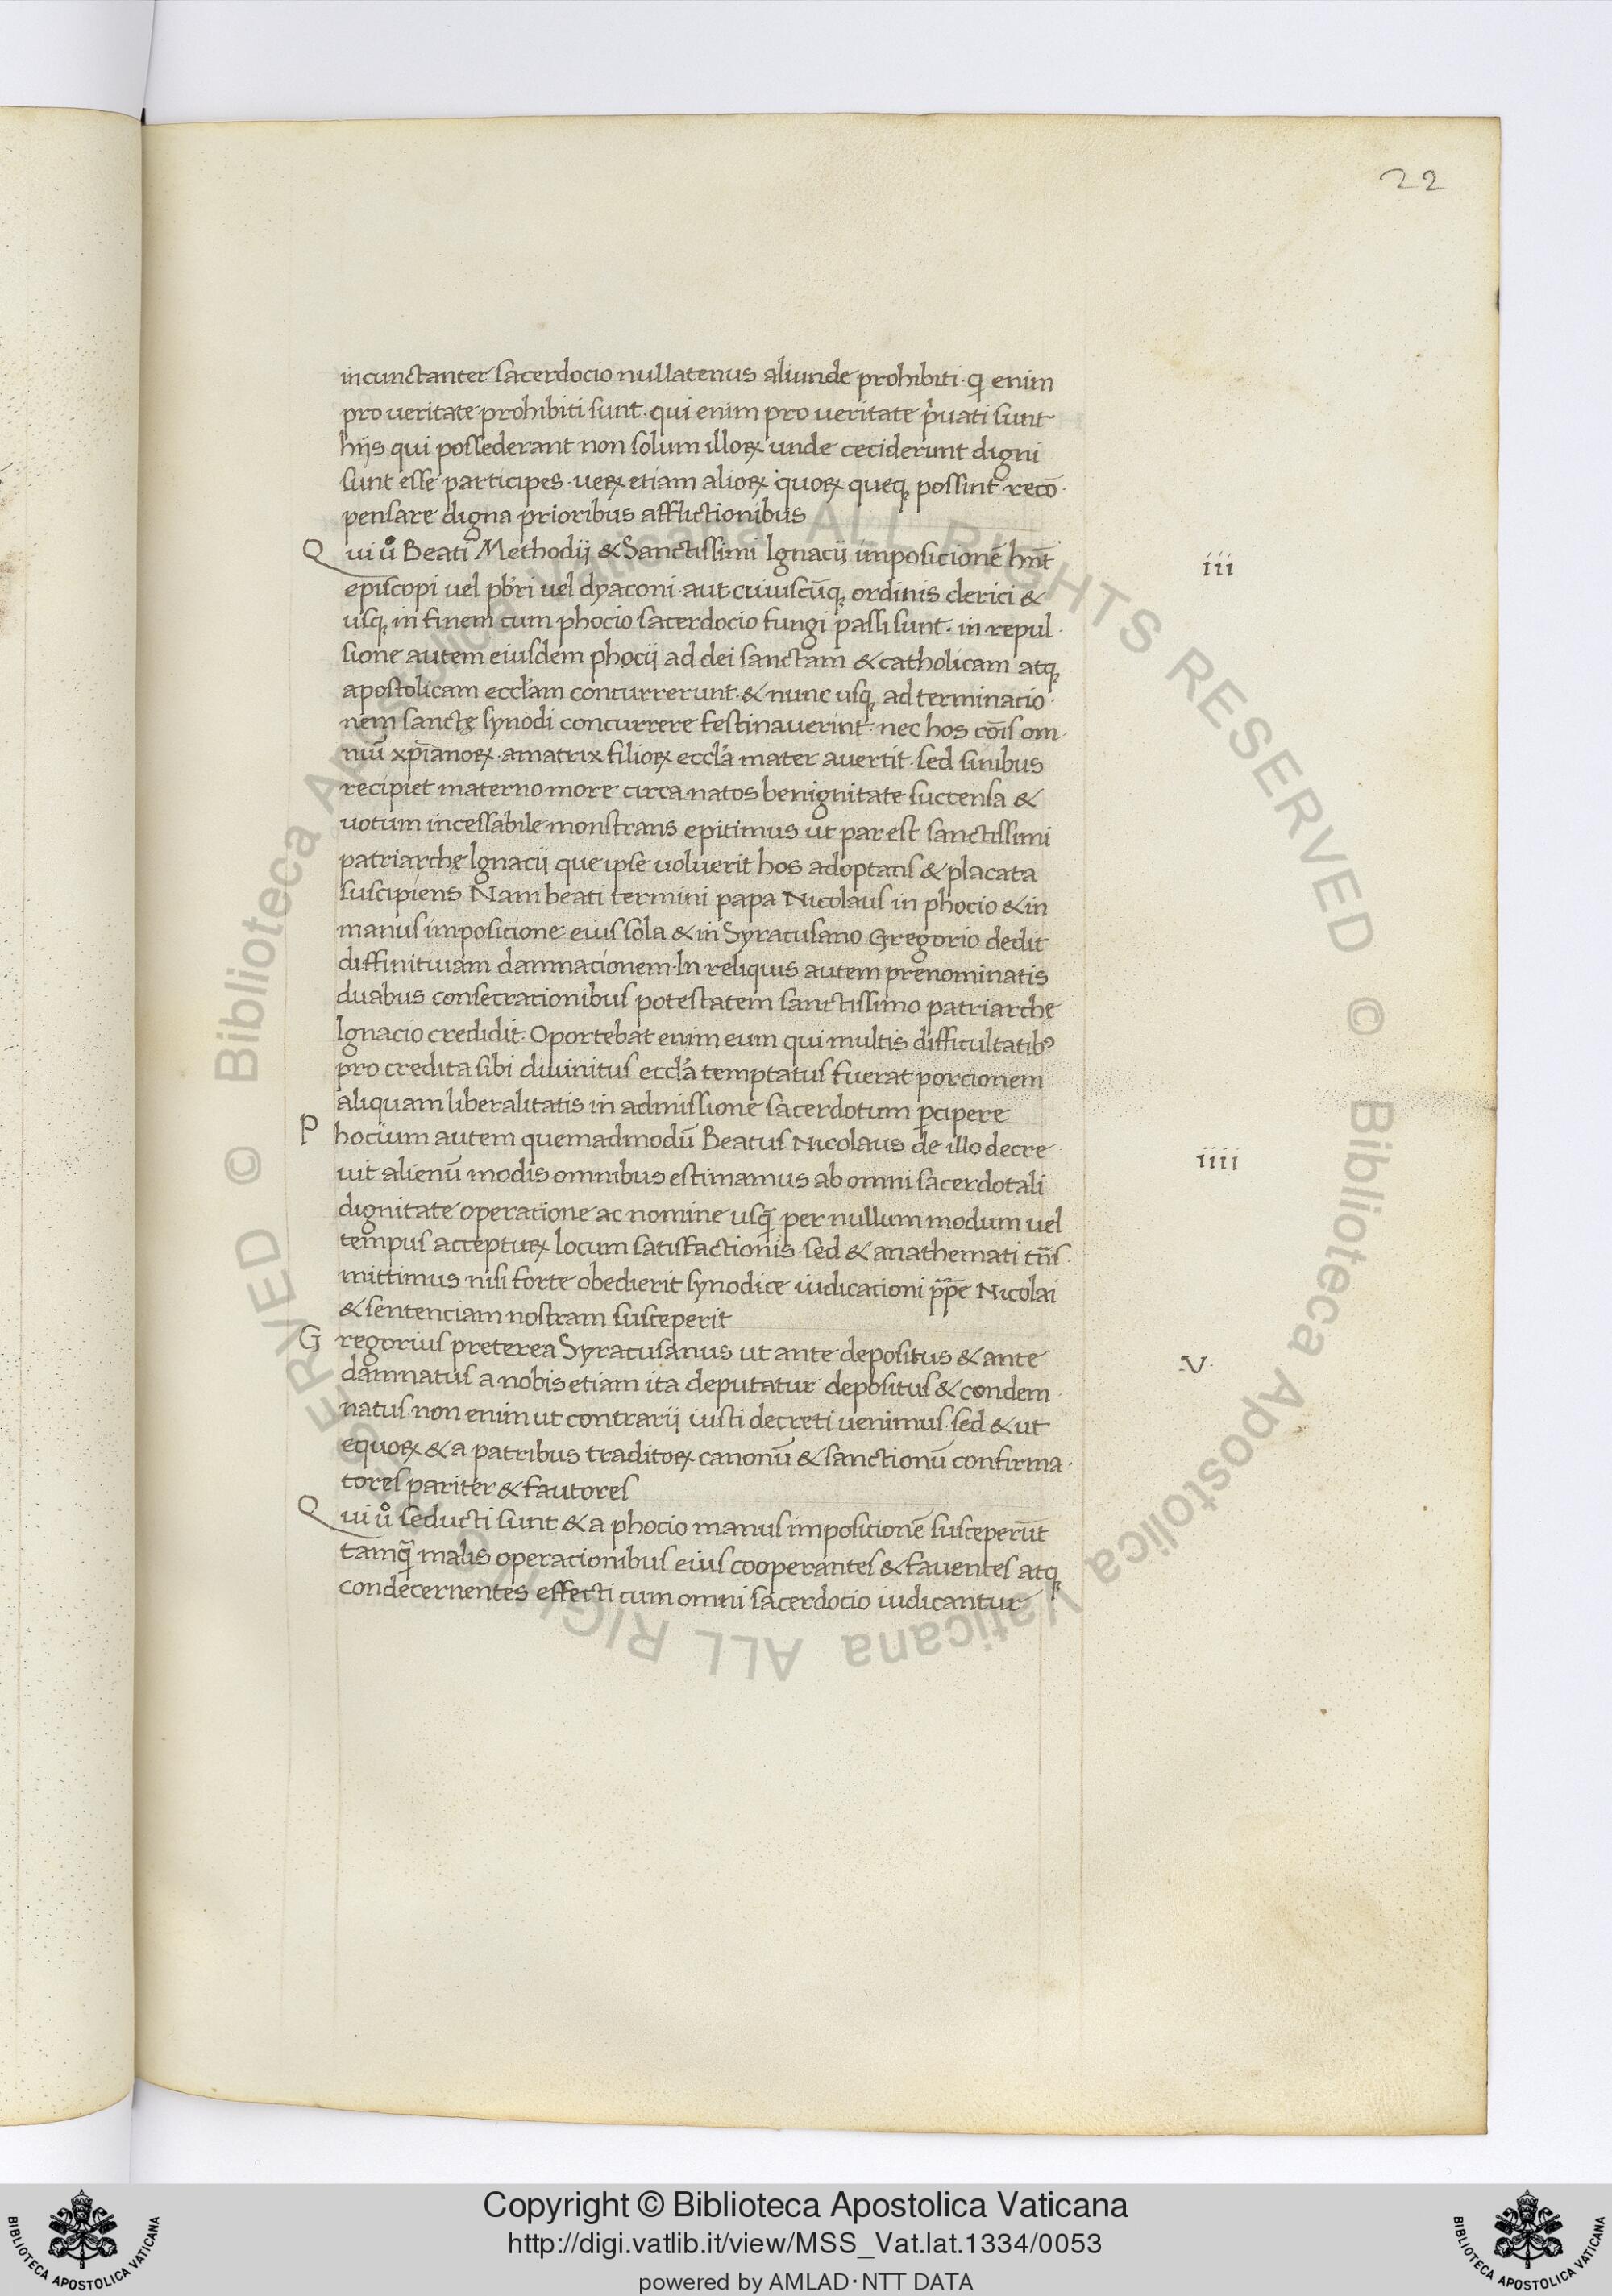 22
incunctanter sacerdocio nullatenus aliunde prohibiti · q enim
pro veritate prohibiti sunt · qui enim pro veritate pͥuati sunt
hijs qui possederant non solum illoꝝ unde ceciderunt digni
sunt esse participes · ueꝝ etiam alioꝝ quoꝝ queqꝫ possint recō·
pensare digna prioribus afflictionibus
Qui uͦ Beati Methodij & Sanctissimi Ignacij imposicionē hn̄t
iii
episcopi uel pb̄ri uel dyaconi · aut cuiuscūqꝫ ordinis clerici &
usqꝫ in finem cum phocio sacerdocio fungi passi sunt · in repul·
sione autem eiusdem phocij ad dei sanctam & catholicam atqꝫ
apostolicam eccl̄am concurrerunt · & nunc usqꝫ ad terminacio·
nem sanctę synodi concurrere festinauerint · nec hos cōis om·
niū xp̄ianoꝝ · amatrix filioꝝ eccl̄a mater auertit · sed sinibus
recipiet materno more circa natos benignitate succensa &
uotum incessabile monstrans epitimus ut par est sanctissimi
patriarchę Ignacij que ipse uoluerit hos adoptans & placata
suscipiens Nam beati termini papa Nicolaus in phocio & in
manus imposicione eius sola & in Syracusano Gregorio dedit
diffinitiuam damnacionem · In reliquis autem prenominatis
duabus consecracionibus potestatem sanctissimo patriarche
Ignacio credidit · Oportebat enim eum qui multis difficultatibꝰ
pro credita sibi diuinitus eccl̄a temptatus fuerat porcionem
aliquam liberalitatis in admissione sacerdotum ꝑcipere
Phocium autem quemadmodū Beatus Nicolaus de illo decre
iiii
uit alienū modis omnibus estimamus ab omni sacerdotali
dignitate operatione ac nomine usq̄ per nullum modum uel
tempus accepturꝝ locum satisfactionis · sed & anathemati tn̄s·
mittimus nisi forte obedierit synodice iudicacioni pp̄e Nicolai
& sentenciam nostram susceperit
Gregorius preterea Syracusanus ut ante depositus & ante
·V·
damnatus a nobis etiam ita deputatur depositus & condem·
natus · non enim ut contrarij iusti decreti uenimus · sed & ut
equoꝝ & a patribus traditoꝝ canonū & sanctionū confirma·
tores pariter & fautores
Qui uͦ seducti sunt & a phocio manus impositionē susceperūt
tamq̄ malis operacionibus eius cooperantes & fauentes atqꝫ
condecernentes effecti cum omni sacerdocio iudicantur
© Biblioteca Apostolica Vaticana ALL RIGHTS RESERVED
© Biblioteca Apostolica Vaticana ALL RIGHTS RESERVED
BIBLIOTECA APOSTOLICA VATICANA
Copyright © Biblioteca Apostolica Vaticana
http://digi.vatlib.it/view/MSS_Vat.lat.1334/0053
powered by AMLAD·NTT DATA
BIBLIOTECA APOSTOLICA VATICANA